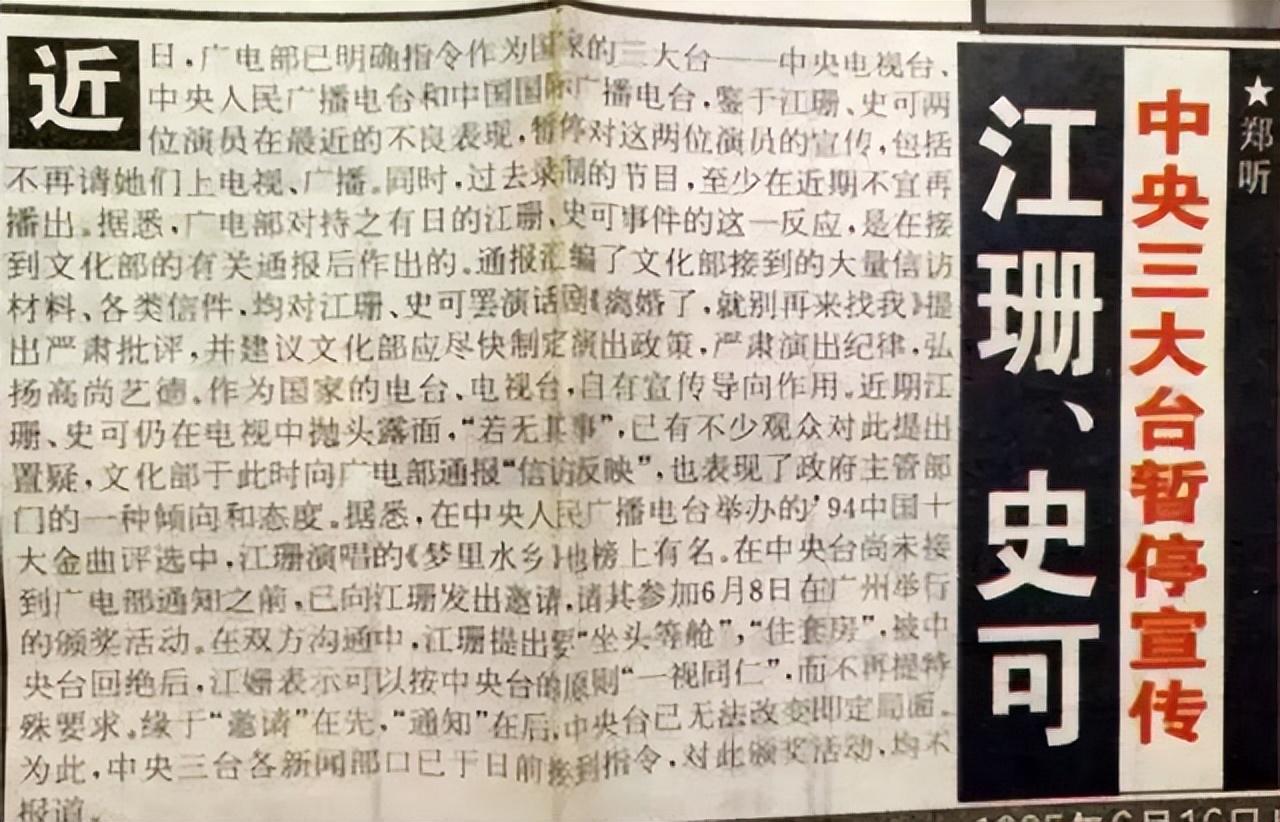 中央三大台暂停宣传
江珊、史可
★郑听
近日，广电部已明确指令作为国家的三大台——中央电视台、
中央人民广播电台和中国国际广播电台，鉴于江珊、史可两
位演员在最近的不良表现，暂停对这两位演员的宣传，包括
不再请她们上电视、广播。同时，过去录制的节目，至少在近期不宜再
播出。据悉，广电部对持之有日的江珊、史可事件的这一反应，是在接
到文化部的有关通报后作出的。通报汇编了文化部接到的大量信访
材料、各类信件，均对江珊、史可罢演话剧《离婚了，就别再来找我》提
出严肃批评，并建议文化部应尽快制定演出政策，严肃演出纪律，弘
扬高尚艺德。作为国家的电台、电视台，自有宣传导向作用。近期江
珊、史可仍在电视中抛头露面，“若无其事”，已有不少观众对此提出
置疑，文化部于此时向广电部通报“信访反映”，也表现了政府主管部
门的一种倾向和态度。据悉，在中央人民广播电台举办的’94中国十
大金曲评选中，江珊演唱的《梦里水乡》也榜上有名。在中央台尚未接
到广电部通知之前，已向江珊发出邀请，请其参加6月8日在广州举行
的颁奖活动。在双方沟通中，江珊提出要“坐头等舱”，“住套房”，被中
央台回绝后，江姗表示可以按中央台的原则“一视同仁”，而不再提特
殊要求。缘于“邀请”在先，“通知”在后，中央台已无法改变即定局面。
为此，中央三台各新闻部口已于日前接到指令，对此颁奖活动，均不
报道。
1995年6月16日